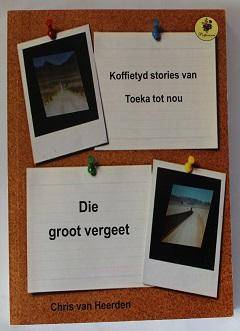 Koffietyd stories van
Toeka tot nou
Die
groot vergeet
Chris van Heerden